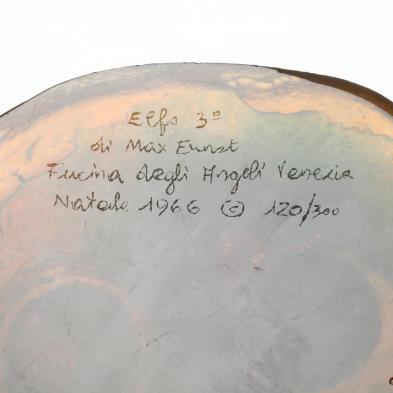 Elfo 3º
di Max Ernst
Fucina degli Angeli Venezia
Natale 1966 © 120/300